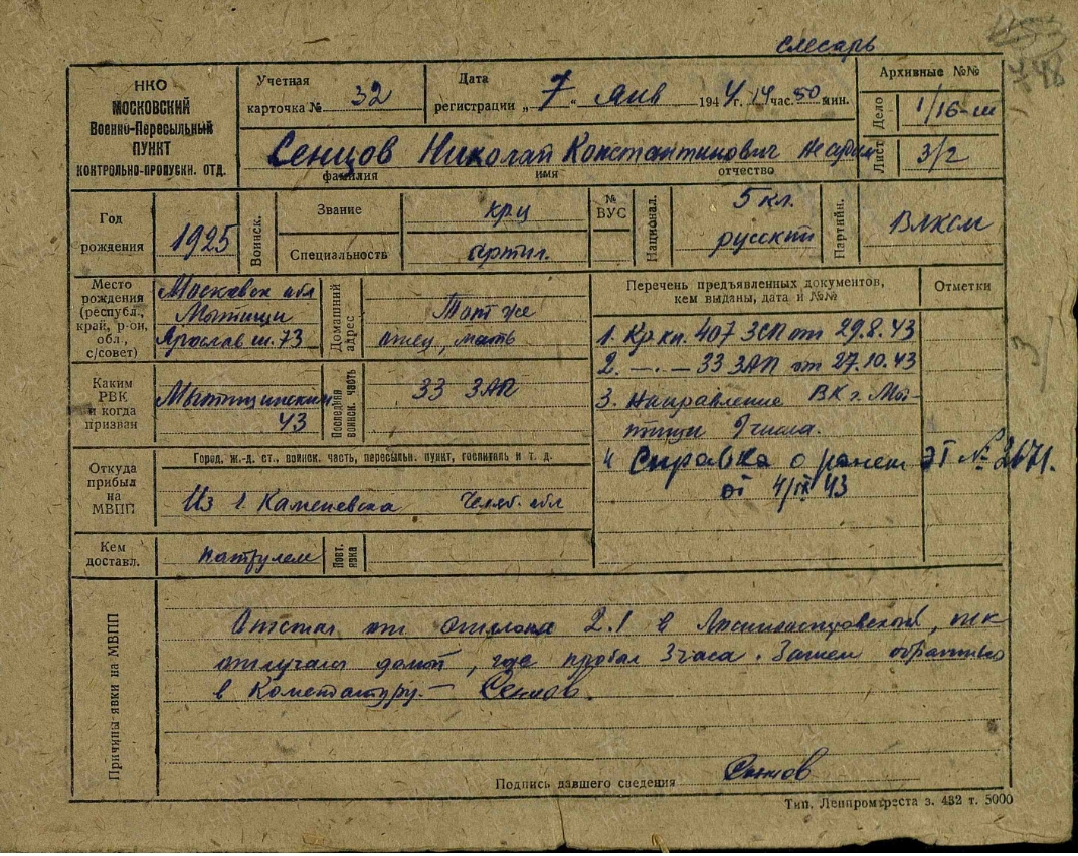 слесарь
НКО
МОСКОВСКИЙ
Военно-Пересыльный
ПУНКТ
КОНТРОЛЬНО-ПРОПУСКН. ОТД.
Учетная
карточка № 32
Дата
регистрации „7“ янв 1944 г. 14 час. 50 мин.
Архивные №№
Дело 1/16-ш
Лист 3/2
Сенцов Николай Константинович
фамилия имя отчество
Год
рождения
1925
Воинск.
Звание
крц
Специальность
артил.
№
ВУС
Национал.
5 кл.
русский
Партийн.
ВЛКСМ
Место
рождения
(республ.,
край, р-он,
обл.,
с/совет)
Московск обл
Мытищи
Ярослав ш. 73
Домашний
адрес
Там же
отец, мать
Каким
РВК
и когда
призван
Мытищинский
43
Последняя
воинск. часть
33 ЗАП
Перечень предъявленных документов,
кем выданы, дата и №№
Отметки
1. Кр. кн. 407 ЗСП от 29.8.43
2. —.— 33 ЗАП от 27.10.43
3. Направление ВК г. Мы-
тищи
4 Справка о ранен ЭГ №2671.
от 4/IX 43
Откуда
прибыл
на
МВПП
Город, ж.-д. ст., воинск. часть, пересыльн. пункт, госпиталь и т. д.
Из г. Каменска Челяб. обл
Кем
доставл.
патрулем
Повт.
явка
Причины явки на МВПП
Отстал от эшелона 2.1 в Лосиноостровской, т.к
отлучался домой, где пробыл 3 часа. Затем обратился
в Комендатуру. — Сенцов.
Подпись давшего сведения Сенцов
Тип. Ленпромтреста з. 432 т. 5000